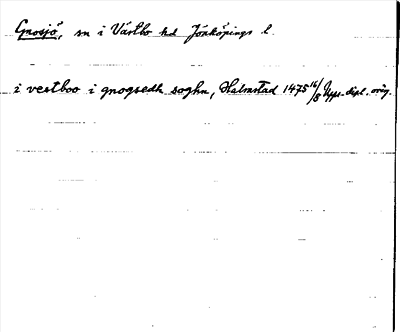 Gnosjö, sn i Västbo hd Jönköpings l.
i vestboo i gnogsedh soghn, Halmstad 1475 16/8 Upps. dipl. orig.